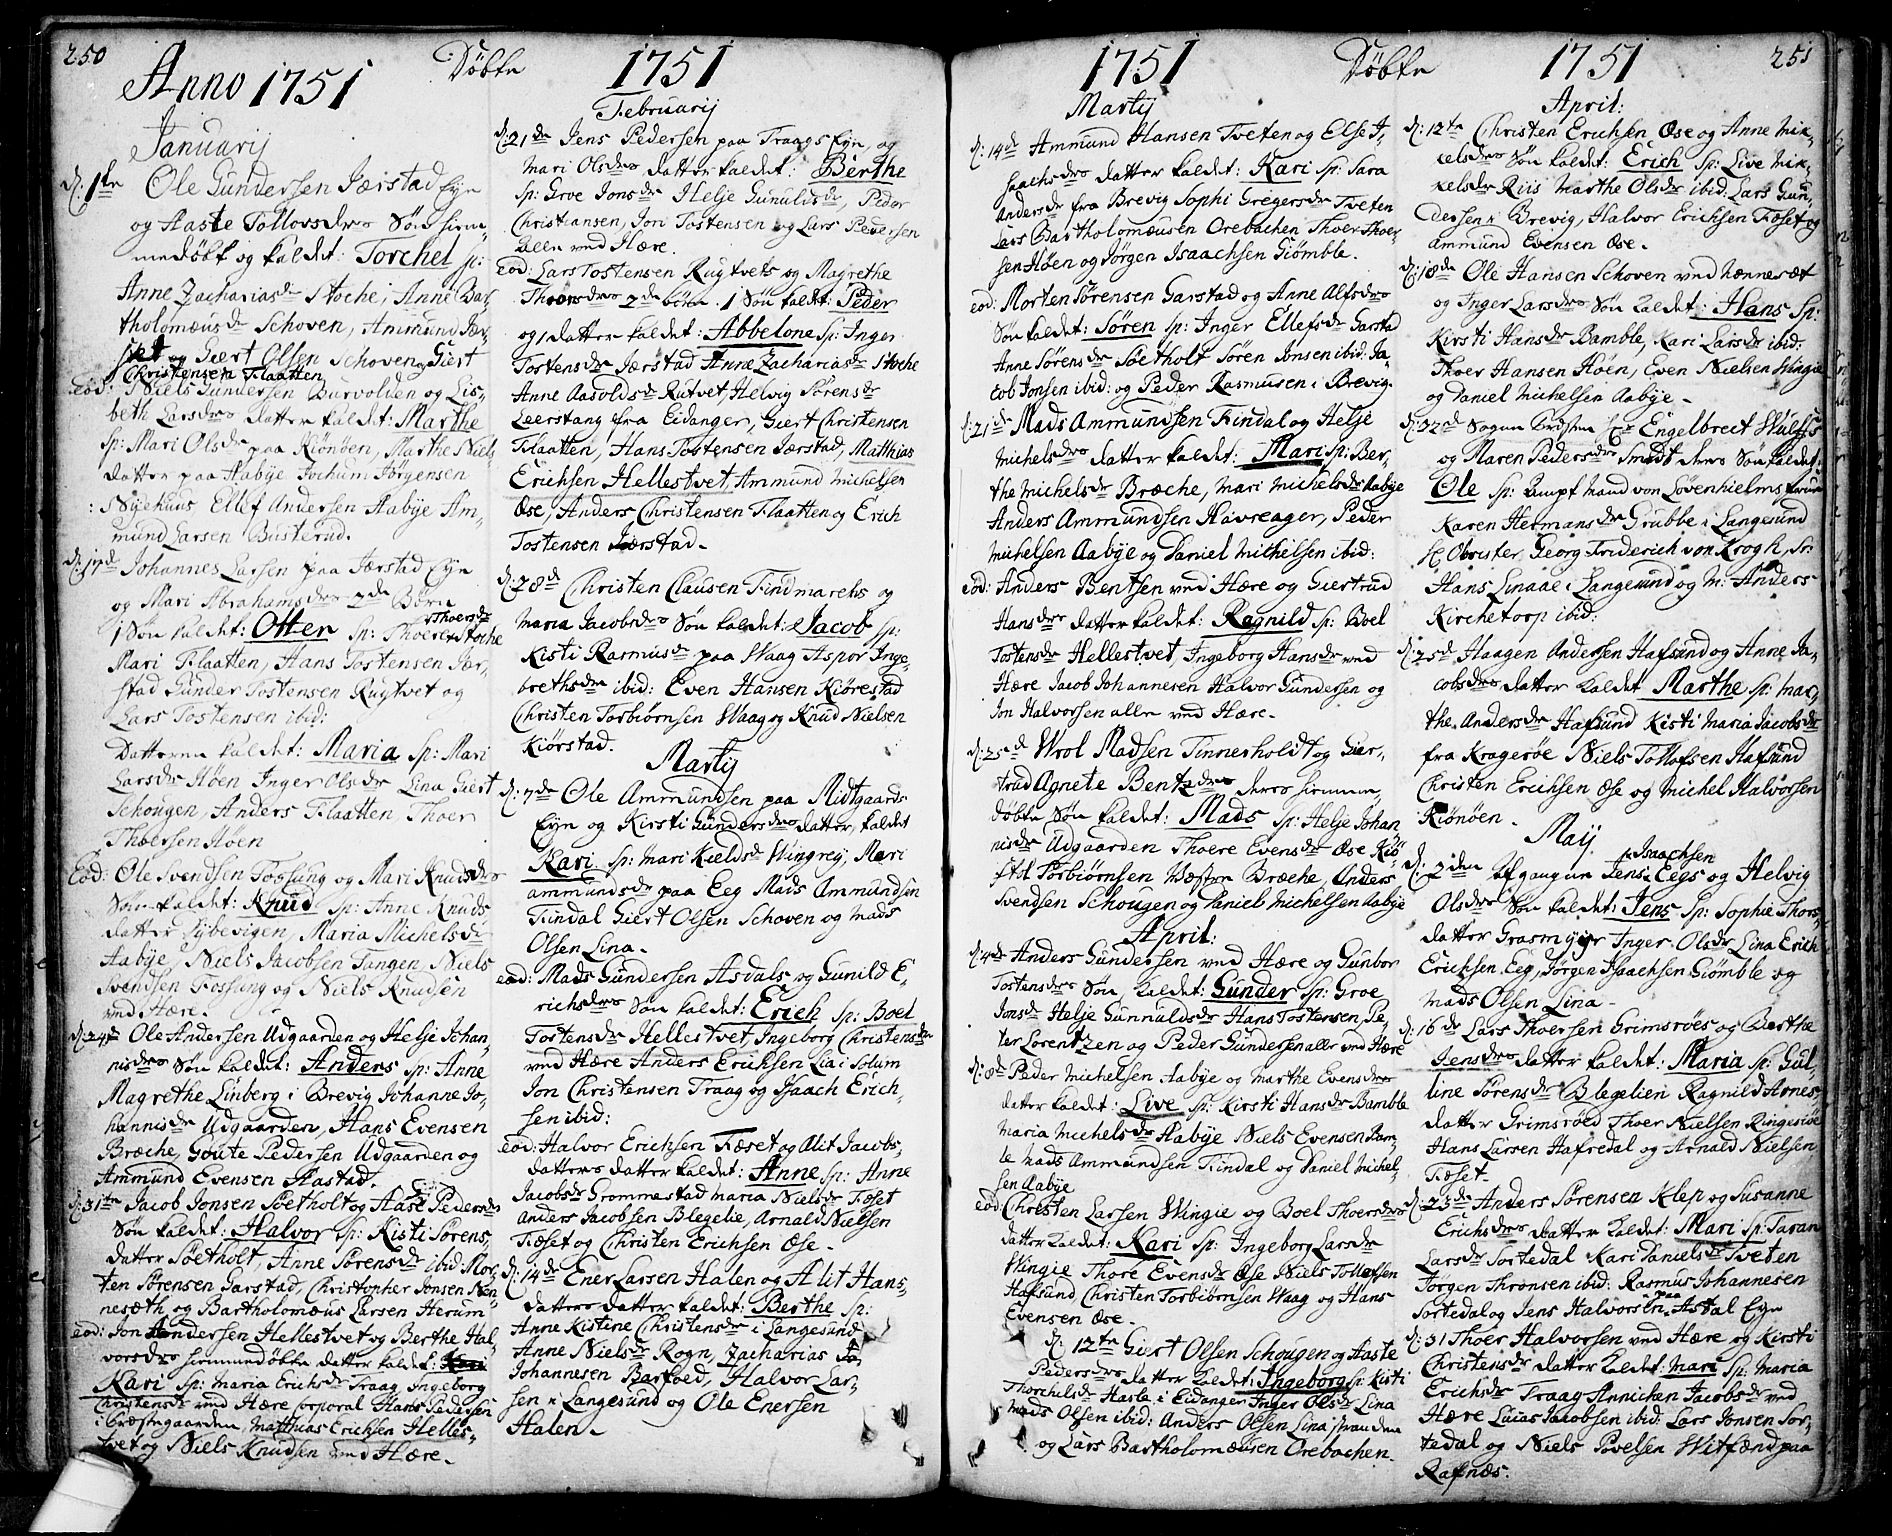 250
Anno 1751
Döbte
Januarij
d: 1te Ole Gundersen Jærstad Eyn
og Haste Tollovsdrs Sön hiem,
medöbt og kaldet: Torchel sp:
Anne Zachariasdr Stoche, Anne Bar,
tholomæusdr Schoven, Ammund Jær,
stet og Giert Olsen Schoven og Giert
Christensen Flaatten
Eod: Niels Gundersen Burvolden og Lis,
beth Larsdrs datter kaldet: Marthe
Sp: Mari Olsdr paa Kiönöen, Marthe Niels
datter paa Aabye Jochum Jörgensen
Nyehuus Ellef Andersen Aabye Am,
mund Larsen Busterud.
d: 17d Johannes Larsen paa Jærstad Eyn
og Mari Abrahamsdrs 2de Börn
1 Sön kaldet: Otten sp: Thoere Thoersdr Stoche
Mari Flaatten, Hans Tostensen Jær,
stad Gunder Tostensen Rugtvet og
Lars Tostensen ibid:
Datteren kaldet: Maria Sp: Mari
Larsdr Höen Inger Olsdr Lina Giert
Schougen, Anders Flaatten, Thoer
Thoersen Höen
Eod: Ole Svendsen Fossung og Mari Knudsdrs
Sön kaldet: Knud sp: Anne Knuds
datter Sybevigen, Maria Michelsdr
Aabye, Niels Jacobsen Tangen, Niels
Svendsen Fossung og Niels Knudsen
ved Hære.
d: 24de Ole Andersen Udgaarden og Helje Johan,
nisdrs Sön kaldet: Anders sp: Anne
Magrethe Linberg i Brevig Johanne Jo,
hannisdr Udgaarden, Hans Evensen
Bræche, Goute Pedersen Udgaarden og
Ammund Evensen Aastad.
d: 31te Jacob Jonsen Söetholt og Aase Pedersdrs
Sön kaldet: Halvor sp: Kisti Sörens,
datter Söetholt, Anne Sörensdr ibid Mor,
ten Sörensen Garstad, Christopher Jonsen Non
neseth og Bartholomæus Larsen Herum
eod: Jon Andersen Hellestvet og Berthe Hal,
vorsdrs hiemmedöbte datter kaldet:
Kari Sp: Maria Erichsdr Traag Ingeborg
Christensdr ved Hære Corporal Hans Pedersen
i Præstegaarden Matthias Erichsen Helles,
tvet og Niels Knudsen ved Hære.

1751
Februarij
d: 21de Jens Pedersen paa Traags Eyn, og
Mari Olsdrs datter kaldet: Berthe
Sp: Groe Jonsdr Helje Gunuldsdr, Peder
Christiansen, Jon Tostensen og Lars Pedersen
alle ved Hære.
eod: Lars Tostensen Rugtvets og Magrethe
Thoersdrs 2de börn. 1 Sön kaldet: Peder
og 1 datter kaldet: Abbelone Sp: Inger
Tostensdr Jærstad Anne Zachariasdr Stoche
Anne Aasoldsdr Rutvet, Helvig Sörensdr
Leerstang fra Eidanger, Giert Christensen
Flaatten, Hans Tostensen Jærstad, Matthias
Erichsen Hellestvet, Ammund Michelsen
Öse, Anders Christensen Flaatten og Erich
Tostensen Jærstad.
d: 28d Christen Clausen Findmarchs og
Maria Jacobsdrs Sön kaldet: Jacob sp:
Kisti Rasmusdr paa Waag Aspor Inge,
brethsdr ibid: Even Hansen Kiörestad
Christen Torbiörnsen Waag og Knud Nielsen
Kiörstad.
Martij
d: 7de Ole Ammundsen paa Midtgaards
Eyn og Kirsti Gundersdrs datter, kaldet
Kari sp: Mari Kieldsdr Wingrej, Mari
Ammundsdr paa Eeg Mads Ammundsen
Findal Giert Olsen Schoven og Mads
Olsen Lina.
eod: Mads Gundersen Asdals og Gunild E,
richsdrs Sön kaldet: Erich Sp: Boel
Tostensdr Hellestvet, Ingeborg Christensdr
ved Hære Anders Erichsen Lia i Solum
Jon Christensen Traag og Isaach Erich,
sen ibid:
eod: Halvor Erichsen Fæset og Alit Jacobs,
datters datter kaldet: Anne sp: Anne
Jacobsdr Grommestad Maria Nielsdr Foset
Anders Jacobsen Blegelie, Arnald Nielsen
Foset og Christen Erichsen Öse.
d: 14de Ener Larsen Halen og Alit Hans,
datters datter kaldet: Berthe Sp:
Anne Kistine Christensdr i Langesund
Anne Nielsdr Rogn, Zacharias
Johannesen Barfoed, Halvor Lar,
sen i Langesund og Ole Enersen
Halen.

1751
Döbte
Martij
d: 14d Ammund Hansen Tveten og Else I,
saachsdrs datter kaldet: Kari Sp: Sara
Andersdr fra Brevig Sophi Gregersdr Tveten
Lars Bartholomæusen Orebachen Thoer Thoer,
sen Höen og Jörgen Isaachsen Giömble.
eod: Morten Sörensen Garstad og Anne Alfsdrs
Sön kaldet: Sören Sp: Inger Ellefsdr Garstad
Anne Sörensdr Söetholt Sören Jonsen ibid: Ja,
cob Jonsen ibid: og Peder Rasmusen i Brevig.
d: 21de Mads Ammundsen Findal og Helje
Michelsdrs datter kaldet: Mari sp: Ber,
the Michelsdr Bræche, Mari Michelsdr Aabye
Anders Ammundsen Havreager, Peder
Michelsen Aabye og Daniel Michelsen ibid:
eod: Anders Bentsen ved Hære og Giertrud
Hansdrs datter kaldet: Ragnild sp: Boel
Tostensdr Hellestvet, Ingeborg Hansdr ved
Hære Jacob Johannesen Halvor Gundersen og
Jon Halvorsen alle ved Hære.
d: 25d Wrol Madsen Tinnerholdt og Gier,
trud Agnete Bentzdrs deres hiemme,
döbte Sön kaldet: Mads Sp: Helje Johan
nisdr Udgaarden Thoere Evensdr Öse Kiö
stel Torbiörnsen Væstre Bræche, Anders
Svendsen Schougen og Daniel Michelsen Aabye
April:
d: 4de Anders Gundersen ved Hære og Gunbor
Tostensdrs Sön kaldet: Gunder Sp: Groe
Jonsdr Helje Gunnuldsdr Hans Tostensen, Pe,
ter Lorentzen og Peder Gundersen alle ved Hære
d: 8d Peder Michelsen Aabye og Marthe Evensdrs
datter kaldet: Live sp: Kirsti Hansdr Bamble
Maria Michelsdr Aabye Niels Evensen Bam,
le Mads Ammundsen Findal og Daniel Michel,
sen Aabye
eod: Christen Larsen Wingie og Boel Thoersdrs
datter kaldet: Kari sp: Ingeborg Larsdr
Wingie Thore Evensdr Öse Niels Tollefsen
Hafsund, Christen Torbiörnsen Waag og Hans
Evensen Öse.
d: 12te Giert Olsen Schougen og Haste
Pedersdrs datter kaldet: Ingeborg sp: Kisti
Thorchelsdr Hasle i Eidanger Inger Olsdr Lina
Mads Olsen ibid: Anders Olsen Lina Stranden
og Lars Bartholomæusen Orebachen.

1751
251
April:
d: 12te Christen Erichsen Öse og Anne Mik,
kelsdrs Sön kaldet: Erich Sp: Live Mik,
kelsdr Riis Marthe Olsdr ibid: Lars Gun,
dersen i Brevig, Halvor Erichsen Foset og
Ammund Evensen Öse.
d: 18de Ole Hansen Schoven ved Hennesæt
og Inger Larsdrs Sön kaldet: Hans Sp:
Kirsti Hansdr Bamble, Kari Larsdr ibid:
Thoer Hansen Höen, Even Nielsen Wingie
og Daniel Michelsen Aabye.
d: 22de Sogne Præsten Hr Engelbrect Wulfs
og Maren Pedersdrs Smidt deres Sön kaldet:
Ole Sp: von Lövenhielms frue
Karen Hermansdr Grubbe i Langesund
Hr Obrister Georg Friderich von Krogh, Sr:
Hans Linaae i Langesund og M: Anders
Kirchetorp ibid:
d: 25d Haagen Andersen Hafsund og Anne Ja,
cobsdrs datter kaldet Marthe sp: Mar,
the Andersdr Hafsund Kisti Maria Jacobsdr
fra Kragerøe Niels Tollofsen Hafsund
Christen Erichsen Öse og Michel Halvorsen
Kiönöen.
Maij
d: 2den Afgangne Jens Isaachsen Eegs og Helvig
Olsdrs Sön kaldet: Jens Sp: Sophie Thors,
datter Grasmyer Inger Olsdr Lina Erich
Erichsen Eeg, Jörgen Isaachsen Giömble og
Mads Olsen Lina.
d: 16de Lars Thoersen Grimsröes og Berthe
Jensdrs datter kaldet: Maria Sp: Gul,
line Sörensdr Blegelien Ragnild Arnes
datter Grimsröed Thoer Nielsen Ringesröe
Hans Larsen Hafredal og Arnald Nielsen
Foset.
d: 23de Anders Sörensen Klep og Susanne
Erichsdrs datter kaldet: Mari Sp: Taran
Larsdr Tortedal Kari Danielsdr Tveten
Jörgen Thronsen ibid: Rasmus Johannesen
Tortedal og Jens Halvorsen paa Astal Eyn
d: 31 Thoer Halvorsen ved Hære og Kirsti
Christensdr datter kaldet: Mari Sp: Maria
Erichsdr Traag Annichen Jacobsdr ved
Hære Lucas Jacobsen ibid: Lars Jonsen Tor,
tedal og Niels Povelsen Witfænd paa
Rafnæs.